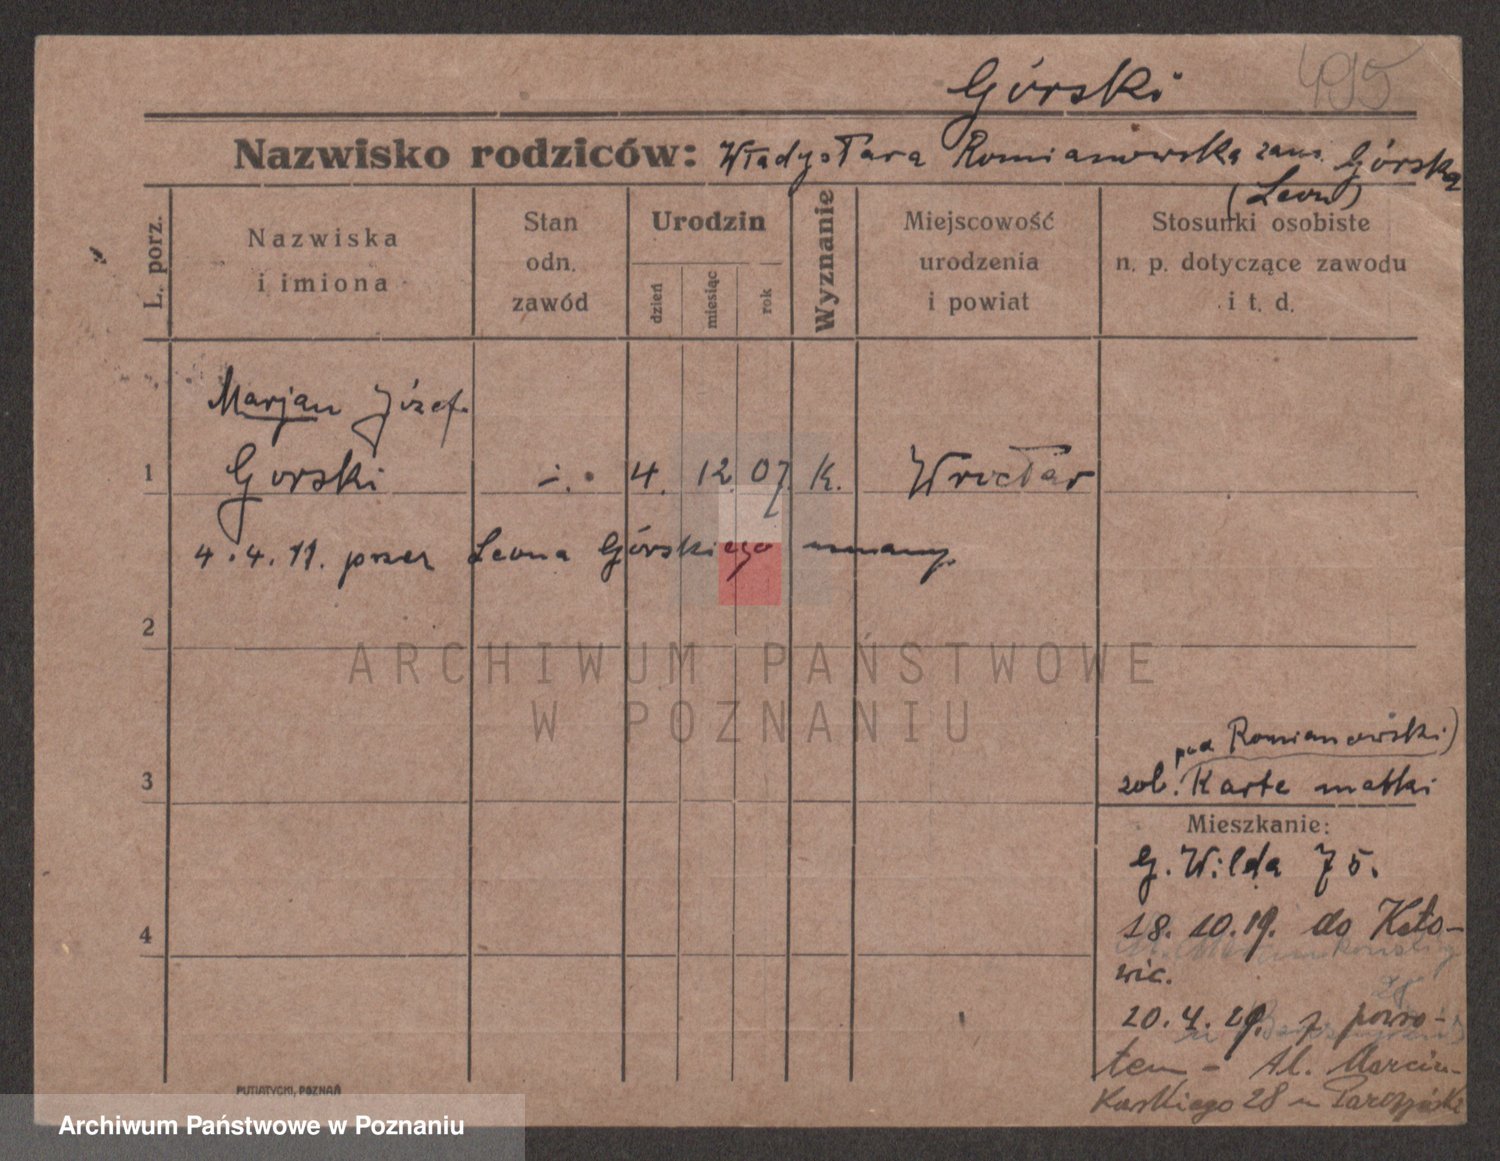 Górski 495
Nazwisko rodziców: Władysława Romianowska zam. Górska
(Leon)
L. porz.
Nazwiska
i imiona
Stan
odn.
zawód
Urodzin
dzień
miesiąc
rok
Wyznanie
Miejscowość
urodzenia
i powiat
Stosunki osobiste
n. p. dotyczące zawodu
i t. d.
Marjan Józef
1 Gorski -. 4. 12. 07. k. Wrocław
4.4.11. przez Leona Górskiego uznany.
2
3
4
pod Romianowski)
zob. Kartę matki
Mieszkanie:
G. Wilda 75.
18. 10. 19. do Kato-
wic.
20. 4. 29. z powro-
tem - Al. Marcin-
kowskiego 28 u
PUTIATYCKI, POZNAŃ
ARCHIWUM PAŃSTWOWE
W POZNANIU
Archiwum Państwowe w Poznaniu